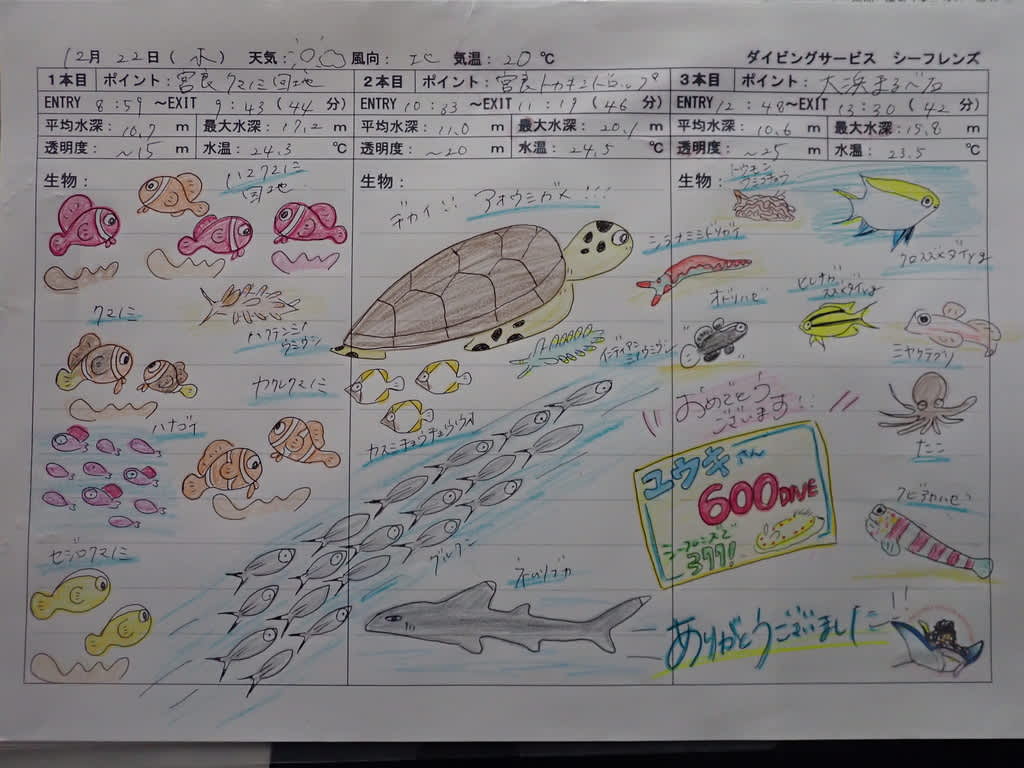 12月 22日(水) 天気: 風向: 北 気温: 20 ℃ ダイビングサービス シーフレンズ
1本目 ポイント: 宮良クマノミ団地
ENTRY 8:59 ~EXIT 9:43 (44 分)
平均水深: 10.7 m 最大水深: 17.2 m
透明度: ~15 m 水温: 24.3 ℃
生物:
ハマクマノミ
団地
クマノミ
ハクテンミノ
ウミウシ
カクレクマノミ
ハナゴイ
セジロクマノミ
2本目 ポイント: 宮良トカキンドロップ
ENTRY 10:33 ~EXIT 11:19 (46 分)
平均水深: 11.0 m 最大水深: 20.1 m
透明度: ~20 m 水温: 24.5 ℃
生物:
デカイ!! アオウミガメ!!!
インディアン
ミノウミウシ
カスミチョウチョウウオ
グルクン
ネムリブカ
3本目 ポイント: 大浜まるべ石
ENTRY 12:48 ~EXIT 13:30 (42 分)
平均水深: 10.6 m 最大水深: 15.8 m
透明度: ~25 m 水温: 23.5 ℃
生物:
クロスズメダイyg
オドリハゼ
ヒレナガ
スズメダイyg
ミヤケテグリ
おめでとう
ございます!!
たこ
ユウキさん
600DIVE
シーフレンズで
377!
クビアカハゼ
ありがとうございました!!